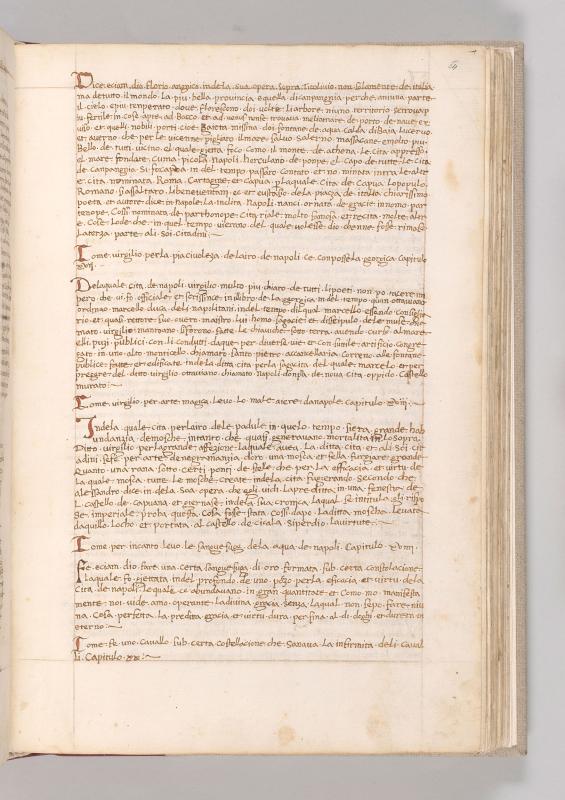 Dice eciam dio florio ancora indela sua opera sopra Titolivio non solamente de italia
ma de tutto il mondo La piu bella provincia e quella di canpangnia perche aniuna parte
il cielo e piu temperato dove florescono doi volte Li arbore niuno territorio se trova
fertile in cose apte ad Bocco et ad
uiso et quelli nobili porti cioe Gaieta missina doi fontane de aqua calda di Baia Lucrino
et averno che per le vicenne pigliavo il mare salvo salerno massacane e molto piu
Bello de tuti vicino el quale gietta foco como il monte de athena Le cita appresso
el mare fondate cuma picola napoli herculano de ponpe el capo de tutte Le cita
de canpangnia Si fo capoa in del tempo passato contato et no minata intra Le altre
e cita nominata Roma Cartagine et Capua plaquale Cita de Capua Lo populo
Romano si assaltaro Libeneventani et e custoso de la piaza de italia chiarissimo
poeta et autore dice in napole La inclita Napoli nanci ornata de gracie in nomo par
tenope Cossi nominata de parthonope Cita riale molto famosa et recita molte altr
e Cose Lode che in quel tempo vierano del quale volesse dio che nne fosse rimasa
Laterza parte ali soi Citadini
Come virgilio per la piacivoleza de lairo de napoli ce conpossela georgica capitolo
xvij
Dela quale cita de napoli virgilio multo piu chiaro de tutti lipoeti non po tacere in
pero che vi fo officiale et scrissence in libro de La georgica in del tempo quan ottaviano
ordinao marcello duca deli napolitani in del tempo dil qual marcello essendo consiglie
rio et quasi rettore suo overo mastro lui homo sagacie et discipulo dele muse chia
mato virgilio mantuano si forono fatte Le chiaviche sotto terra avendo curso al mare
elli puzi publici con li conduti daque per diverse vie et con suttile artificio congre
gate in uno alto monticello chiamato Santo pietro accancellaria correno ale fontane
publice fatte et edificate indela ditta cita per la sagacita del quale marcelo et per
pregere del ditto virgilio ottaviano chiamato napoli donpsa de nova cita oppido Castello
murato
Come virgilio per arte magica Levo Lo male aiere da napole Capitulo xviij
Indela quale cita per lairo dele padule in quelo tempo si era grande hab
undanzia de mosche intanto che quasi ngnetravano mortalita in lo sopra
Ditto virgilio per la grande affezione Laquale avea La ditta cita et ali soi cit
adini fese per arte de negramanzia doro una mosca et fella furgiare grande
Quanto una rana sotto certi ponti de stelle che per La efficacia et virtu de
La quale mosca tutte Le mosche create indela cita fugierando secondo che
alessandro dice in dela Soa opera che egli vidi La predita in una fenestra de
L castello de capuana et giernase indela sua cronica Laqual se intitula gli rispo
se imperiale proba questa Cosa fosse stata cossi dapo La ditta moscha Levata
daquillo Locho et portata al castello de cicala si perdio La virtute
Come per incanto levo le sanguesughe dela aqua de napoli Capitulo xviiij
Fe eciam dio fare una certa sanguesuga di oro formata sub certa constolacione
Laquale fo giettata indel profondo de uno pozo per la eficacia et virtu dela
Cita de napoli Lequale ce abundavano in gran quantitate et Como mo manifesta
mente noi vide amo operante La divina gracia senza Laqual non se po fare niu
na Cosa perfetta La predita gracia et virtu dura per fina al di deghi et durera in
eterno
Come fe uno cavallo sub certa costellacione che Sanava La infirmita deli Caval
li Capitulo xx